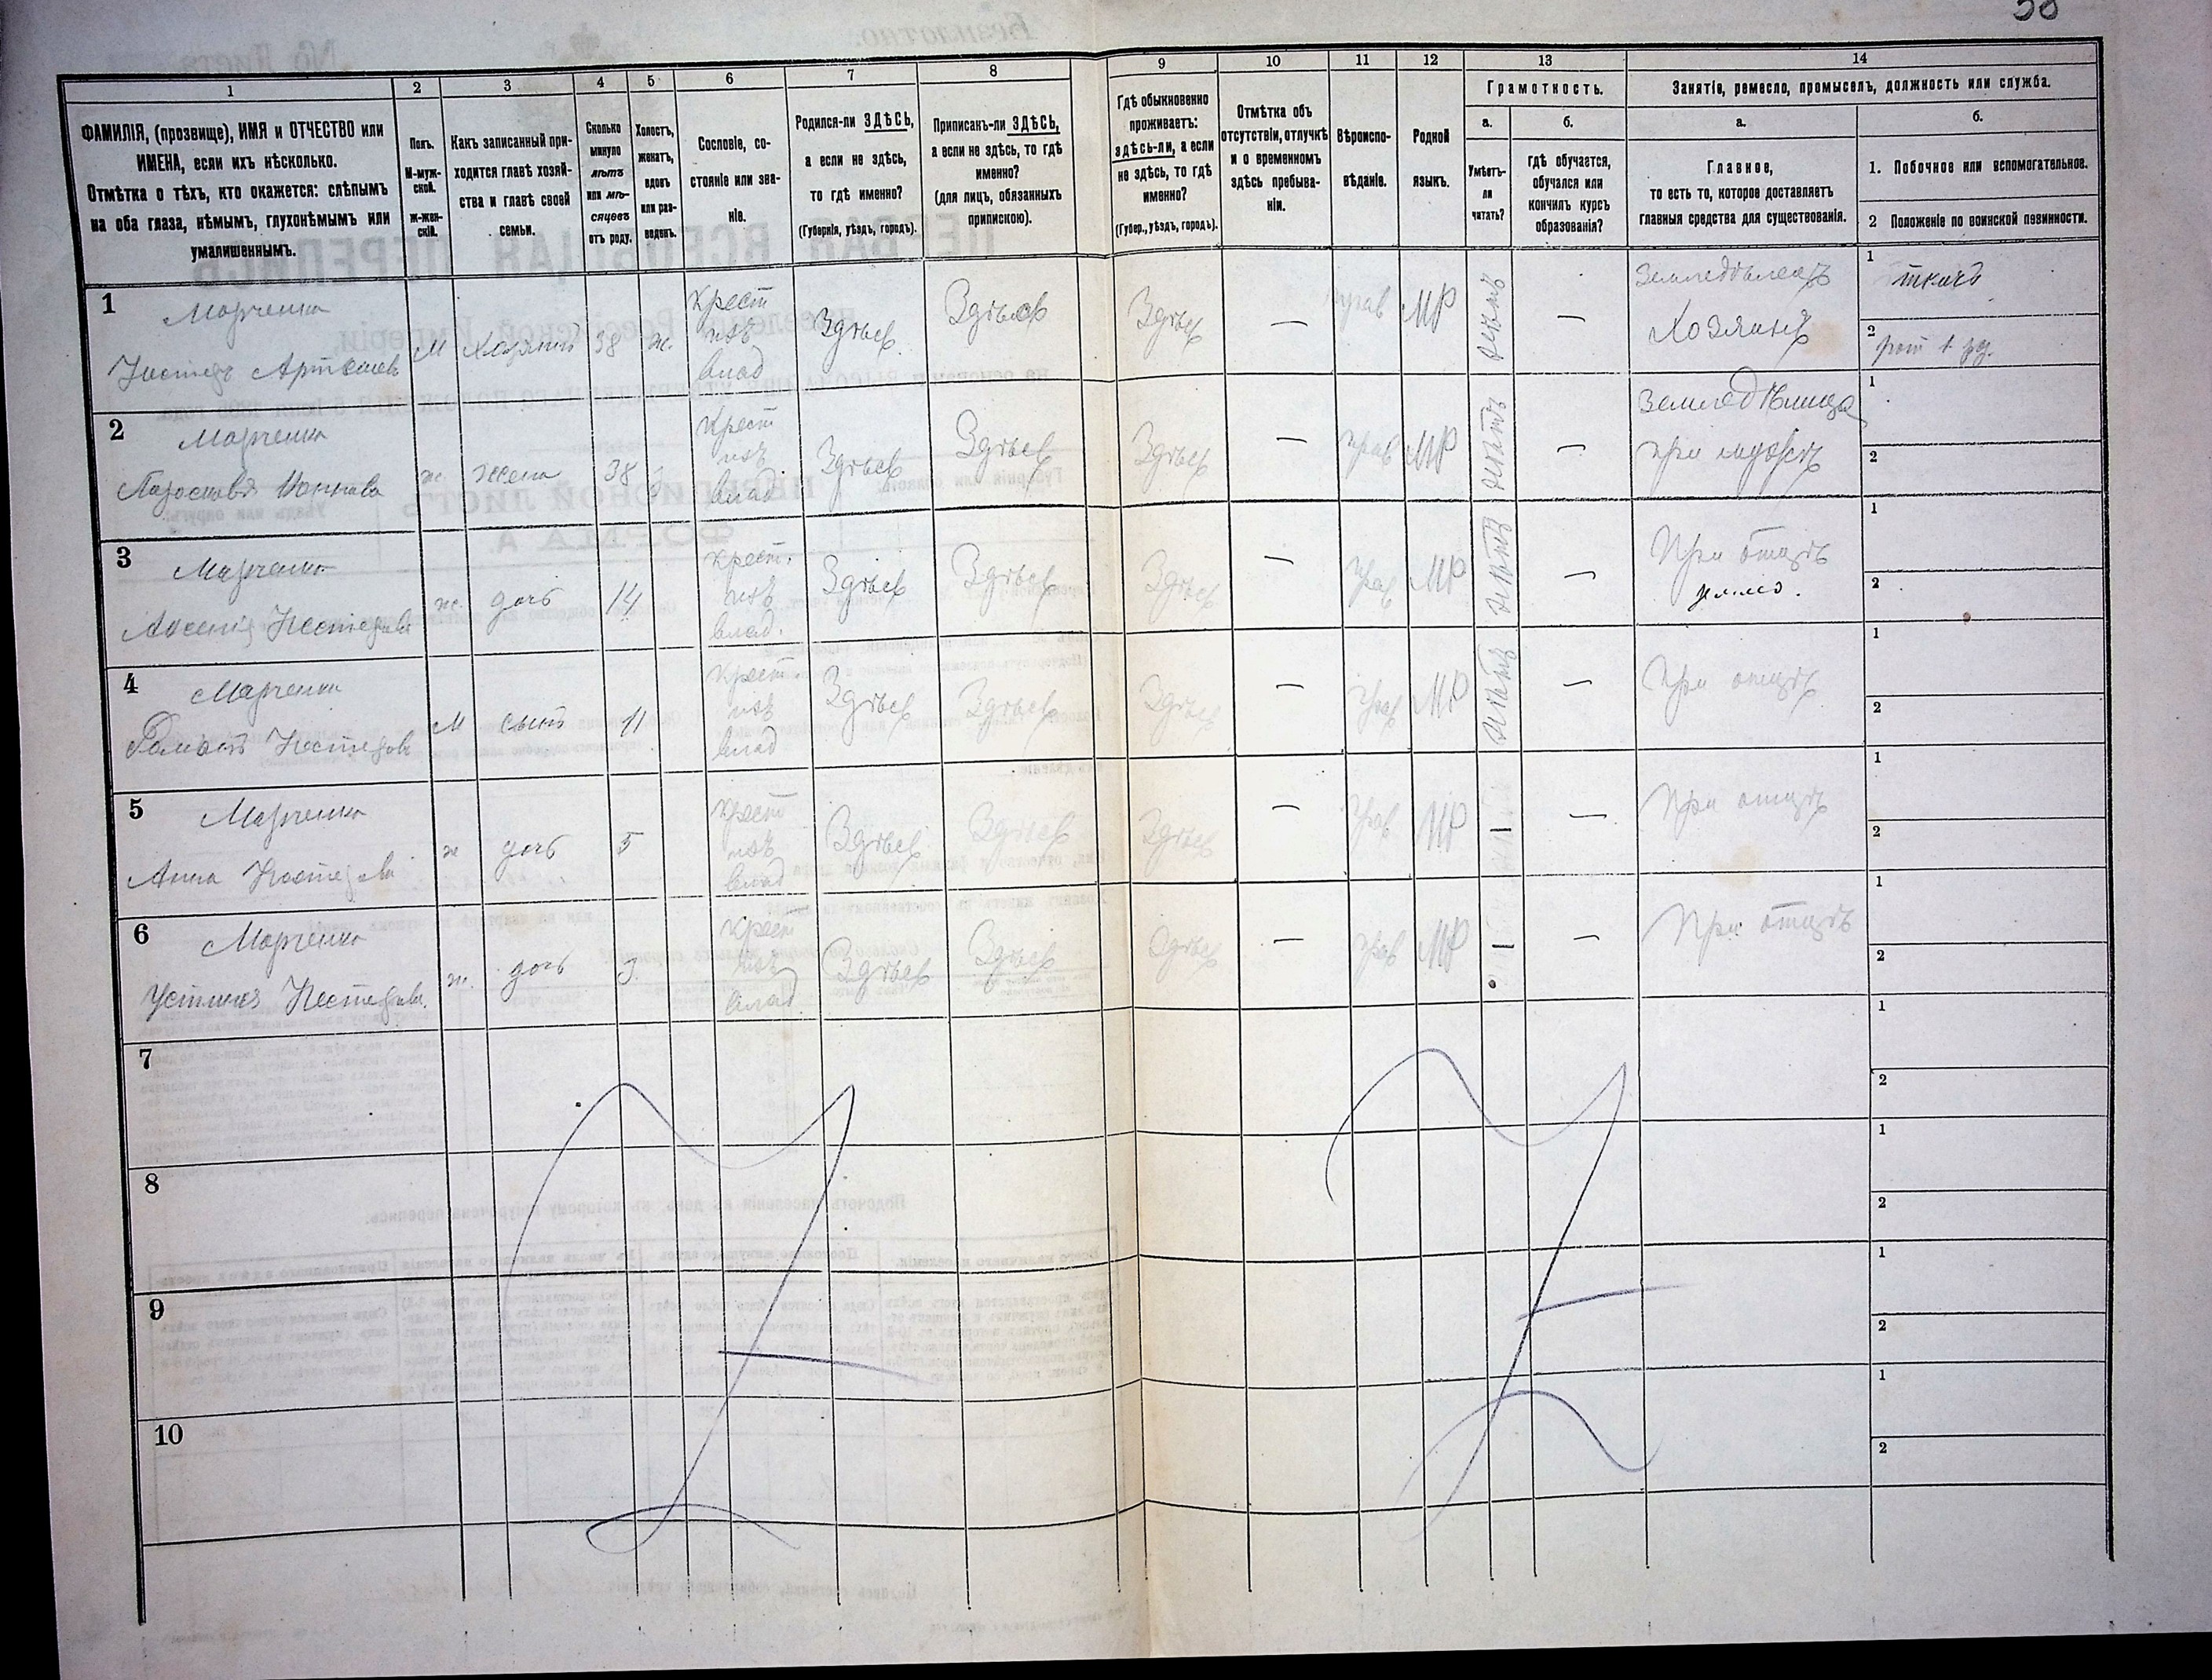 38
1
2
3
4
5
6
7
8
9
10
11
12
13
14
ФАМИЛІЯ, (прозвище), ИМЯ и ОТЧЕСТВО или
ИМЕНА, если ихъ нѣсколько.
Отмѣтка о тѣхъ, кто окажется: слѣпымъ
на оба глаза, нѣмымъ, глухонѣмымъ или
умалишеннымъ.
Полъ.
М-муж-
ской.
Ж-жен-
скій.
Какъ записанный при-
ходится главѣ хозяй-
ства и главѣ своей
семьи.
Сколько
минуло
лѣтъ
или мѣ-
сяцевъ
отъ роду.
Холостъ,
женатъ,
вдовъ
или раз-
веденъ.
Сословіе, со-
стояніе или зва-
ніе.
Родился-ли ЗДѢСЬ,
а если не здѣсь,
то гдѣ именно?
(Губернія, уѣздъ, городъ).
Приписанъ-ли ЗДѢСЬ,
а если не здѣсь, то гдѣ
именно?
(для лицъ, обязанныхъ
припискою).
Гдѣ обыкновенно
проживаетъ:
здѣсь-ли, а если
не здѣсь, то гдѣ
именно?
(Губер., уѣздъ, городъ).
Отмѣтка объ
отсутствіи, отлучкѣ
и о временномъ
здѣсь пребыва-
ніи.
Вѣроиспо-
вѣданіе.
Родной
языкъ.
Грамотность.
а.
Умѣетъ-
ли
читать?
б.
гдѣ обучается,
обучался или
кончилъ курсъ
образованія?
Занятіе, ремесло, промыселъ, должность или служба.
а.
Главное,
то есть то, которое доставляетъ
главныя средства для существованія.
б.
1. Побочное или вспомогательное.
2 Положеніе по воинской повинности.
1
Марченко
Нестеръ Артемовъ
М
Хозяинъ
38
ж.
крест
изъ
влад
Здѣсь
Здѣсь
Здѣсь
—
прав
МР
—
Земледѣлецъ
Хозяинъ
1
ткачъ
2
2
Марченко
ж
жена
38
Крест
изъ
влад
Здѣсь
Здѣсь
Здѣсь
—
прав
МР
—
при мужѣ
1
2
3
Марченко
Нестерова
ж.
дочь
14
крест.
изъ
влад.
Здѣсь
Здѣсь
Здѣсь
—
прав
МР
—
При отцѣ
землед.
1
2
4
Марченко
Романъ Нестеровъ
М
сынъ
11
Крест.
изъ
влад
Здѣсь
Здѣсь
Здѣсь
—
прав
МР
—
При отцѣ
1
2
5
Марченко
Анна Нестерова
ж
дочь
5
крест
изъ
влад
Здѣсь
Здѣсь
Здѣсь
—
прав
МР
—
—
При отцѣ
1
2
6
Марченко
Устинья Нестерова.
ж.
дочь
3.
Крест
изъ
влад.
Здѣсь
Здѣсь
Здѣсь
—
прав
МР
—
—
При отцѣ
1
2
7
1
2
8
1
2
9
1
2
10
1
2